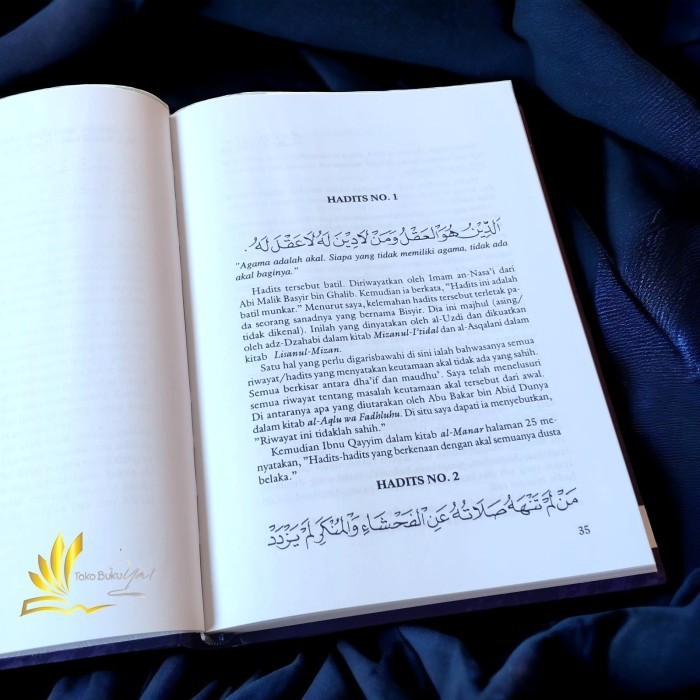 HADITS NO. 1
اَلدِّيْنُ هُوَ الْعَقْلُ وَمَنْ لَادِيْنَ لَهُ لَا عَقْلَ لَهُ.
"Agama adalah akal. Siapa yang tidak memiliki agama, tidak ada
akal baginya."
Hadits tersebut batil. Diriwayatkan oleh Imam an-Nasa'i dari
Abi Malik Basyir bin Ghalib. Kemudian ia berkata, "Hadits ini adalah
batil munkar." Menurut saya, kelemahan hadits tersebut terletak pa-
da seorang sanadnya yang bernama Bisyir. Dia ini majhul (asing/
tidak dikenal). Inilah yang dinyatakan oleh al-Uzdi dan dikuatkan
oleh adz-Dzahabi dalam kitab Mizanul-I'tidal dan al-Asqalani dalam
kitab Lisanul-Mizan.
Satu hal yang perlu digarisbawahi di sini ialah bahwasanya semua
riwayat/hadits yang menyatakan keutamaan akal tidak ada yang sahih.
Semua berkisar antara dha'if dan maudhu'. Saya telah menelusuri
semua riwayat tentang masalah keutamaan akal tersebut dari awal.
Di antaranya apa yang diutarakan oleh Abu Bakar bin Abid Dunya
dalam kitab al-Aqlu wa Fadhluhu. Di situ saya dapati ia menyebutkan,
"Riwayat ini tidaklah sahih."
Kemudian Ibnu Qayyim dalam kitab al-Manar halaman 25 me-
nyatakan, "Hadits-hadits yang berkenaan dengan akal semuanya dusta
belaka."
HADITS NO. 2
مَنْ لَمْ تَنْهَهُ صَلَاتُهُ عَنِ الْفَحْشَاءِ وَالْمُنْكَرِ لَمْ يَزْدَدْ
35
Toko Buku